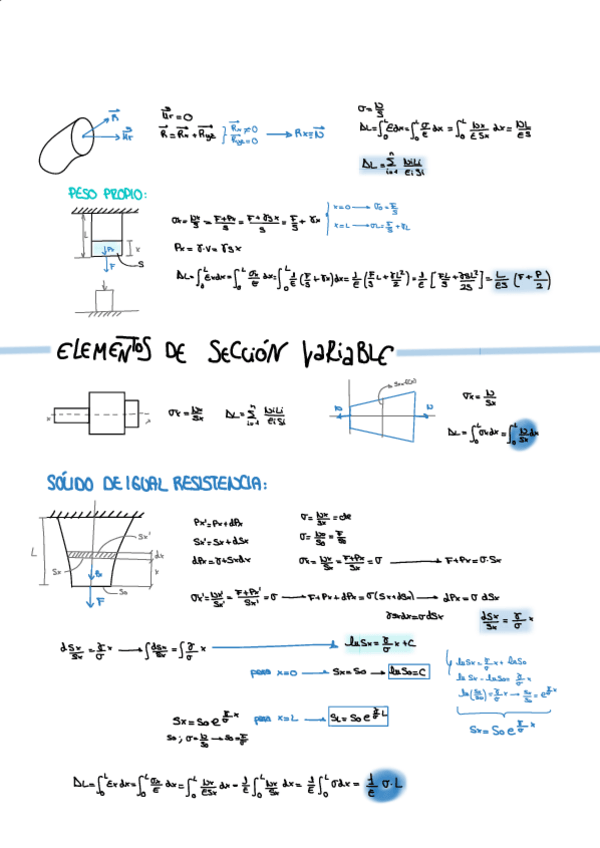 R
Mr
Mr = 0
R = Rx + Ryz } Rx ≠ 0 Ryz = 0 → Rx ≡ N
σ = N/S
ΔL = ∫₀ᴸ εdx = ∫₀ᴸ σ/E dx = ∫₀ᴸ Nx/(E Sx) dx = NL/(ES)
ΔL = Σᵢ₌₁ⁿ NiLi/(EiSi)
PESO PROPIO:
L
Px
x
F
S
σx = Nx/S = (F+Px)/S = (F+γSx)/S = F/S + γx
x=0 → σ₀ = F/S
x=L → σL = F/S + γL
Px = γ·V = γSx
ΔL = ∫₀ᴸ εxdx = ∫₀ᴸ σx/E dx = ∫₀ᴸ 1/E (F/S + γx)dx = 1/E (F/S L + γL²/2) = 1/E [FL/S + γSL²/2S] = L/ES (F + P/2)
ELEMENTOS DE SECCIÓN VARIABLE
σx = Nx/Sx
ΔL = Σᵢ₌₁ⁿ NiLi/(EiSi)
Sx=f(x)
N
N
σx = N/Sx
ΔL = ∫₀ᴸ σxdx = ∫₀ᴸ N/Sx dx
SÓLIDO DE IGUAL RESISTENCIA:
L
Sx'
dx
Sx
x
Px
So
F
Px' = Px + dPx
Sx' = Sx + dSx
dPx = γ·Sxdx
σ = Nx/Sx = cte
σ = No/So = F/So
σx = Nx/Sx = (F+Px)/Sx = σ → F+Px = σ·Sx
σx' = Nx'/Sx' = (F+Px')/Sx' = σ → F+Px+dPx = σ(Sx+dSx) → dPx = σ dSx
γSxdx = σdSx
dSx/Sx = γ/σ x
dSx/Sx = γ/σ x → ∫dSx/Sx = ∫γ/σ x → lnSx = γ/σ x + C
para x=0 → Sx=So → lnSo=C
lnSx = γ/σ x + lnSo
lnSx - lnSo = γ/σ x
ln(Sx/So) = γ/σ x → Sx/So = e^(γ/σ x)
Sx = So e^(γ/σ x)
Sx = So e^(γ/σ x) para x=L → SL = So e^(γ/σ L)
So ; σ = N/So → So = F/σ
ΔL = ∫₀ᴸ εxdx = ∫₀ᴸ σx/E dx = ∫₀ᴸ Nx/(ESx) dx = 1/E ∫₀ᴸ Nx/Sx dx = 1/E ∫₀ᴸ σdx = 1/E σ·L